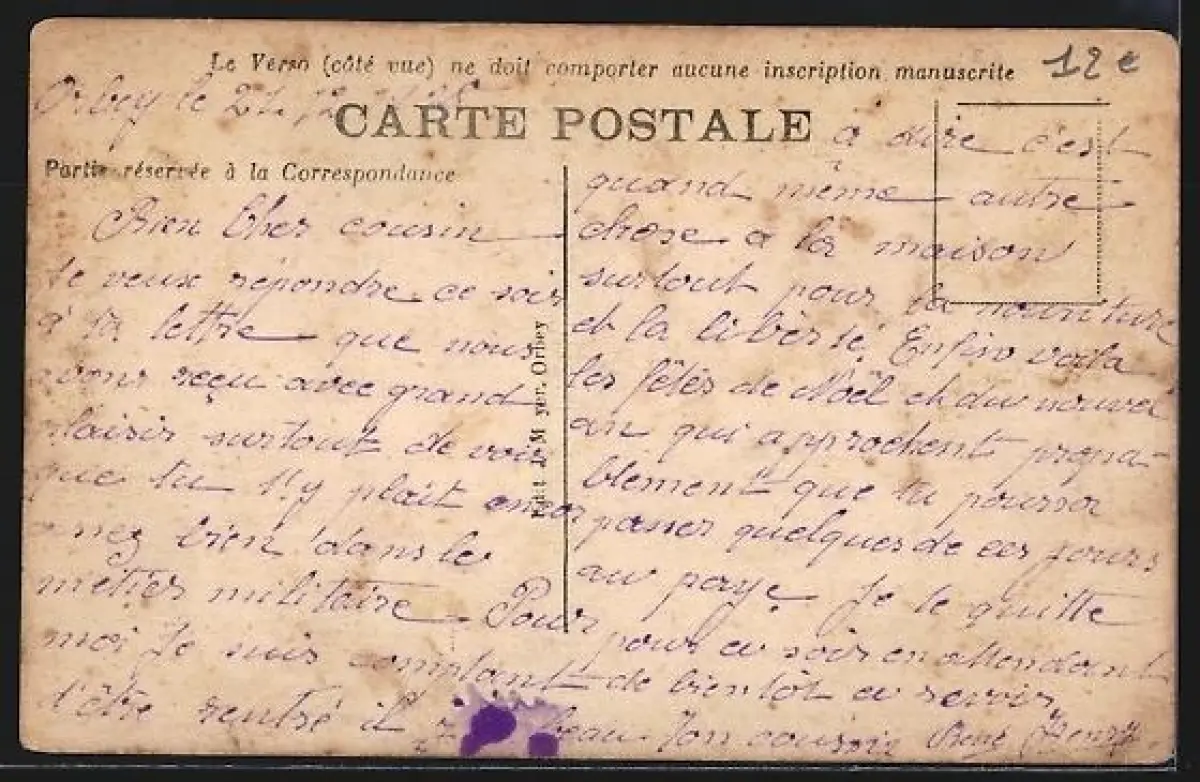 Le Verso (côté vue) ne doit comporter aucune inscription manuscrite
12 e
Orbey le
CARTE POSTALE
Partie réservée à la Correspondance
Bien Cher cousin
Je veux répondre ce soir
à ta lettre que nous
avons reçu avec grand
plaisir surtout de voir
que tu t'y plait
bien dans le
métier militaire Pour
moi Je suis
d'être rentré il
beau
Edit. J. M yer. Orbey
à dire c'est
quand même autre
chose a la maison
surtout pour la nouriture
et la liberté. Enfin voila
les fêtes de Noël et du nouvel
an qui approchent proba-
blement que tu pourra
passer quelques de ces jours
au paye. Je te quitte
pour ce soir en attendant
de bientôt ce revoir
Ton cousin René Henry